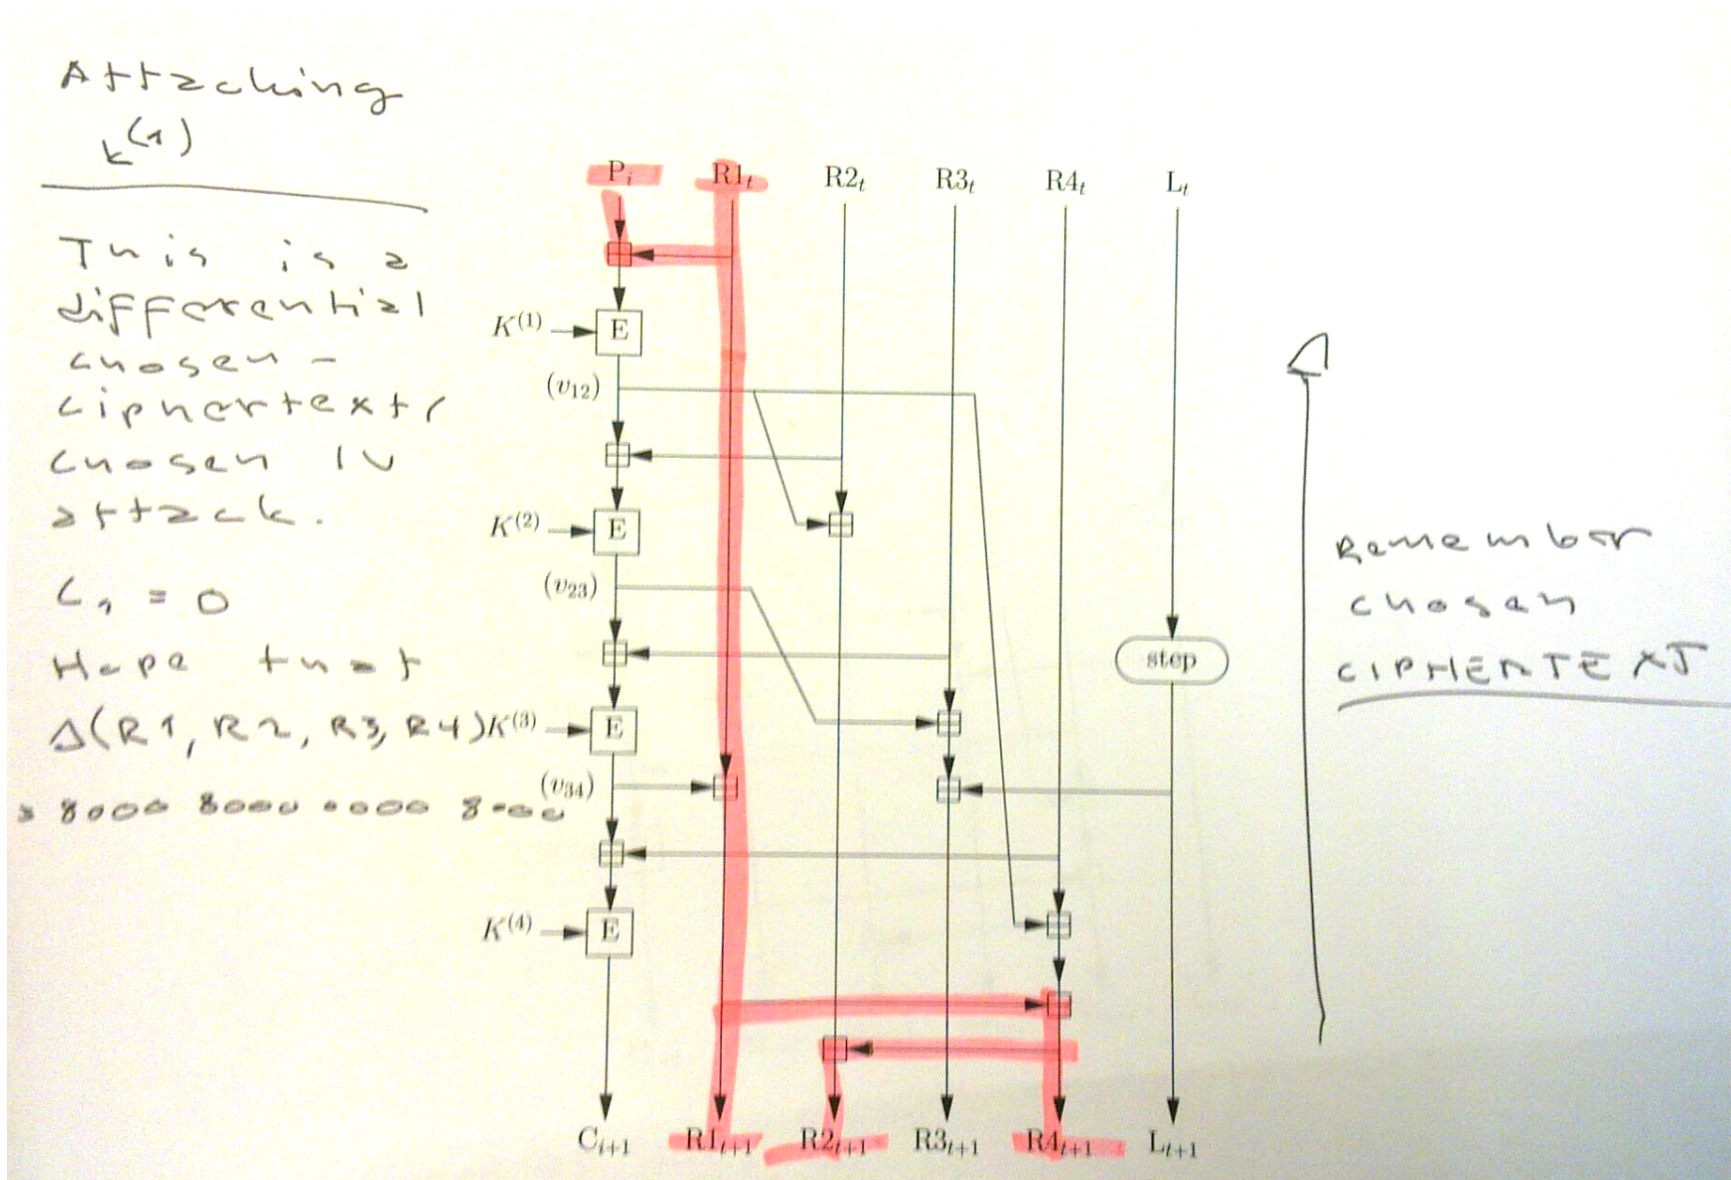 Attacking
k(1)
This is a
differential
chosen-
ciphertext/
chosen IV
attack.
C1 = 0
Hope that
Δ(R1, R2, R3, R4)
= 8000 8000 0000 8000
Pi R1t R2t R3t R4t Lt
K(1) E
(v12)
K(2) E
(v23)
step
K(3) E
(v34)
K(4) E
Ci+1 R1t+1 R2t+1 R3t+1 R4t+1 Lt+1
Remember
chosen
CIPHERTEXT